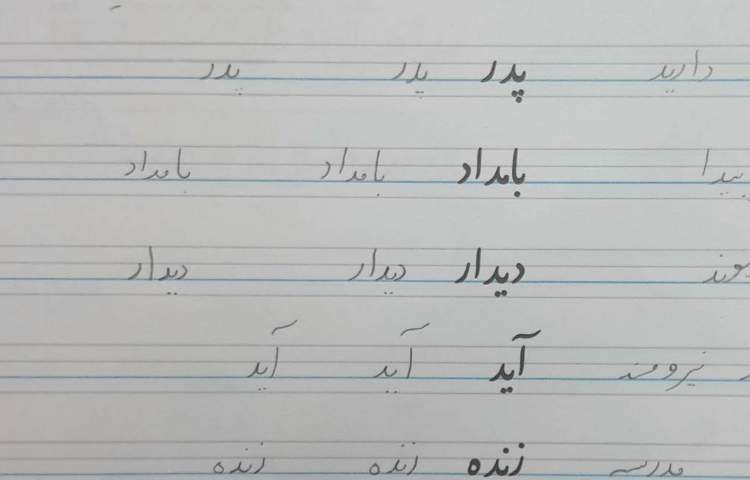 دارید پدر پدر پدر
پیدا بامداد بامداد بامداد
دیدار دیدار دیدار
نیرومند آید آید آید
مدرسه زنده زنده زنده